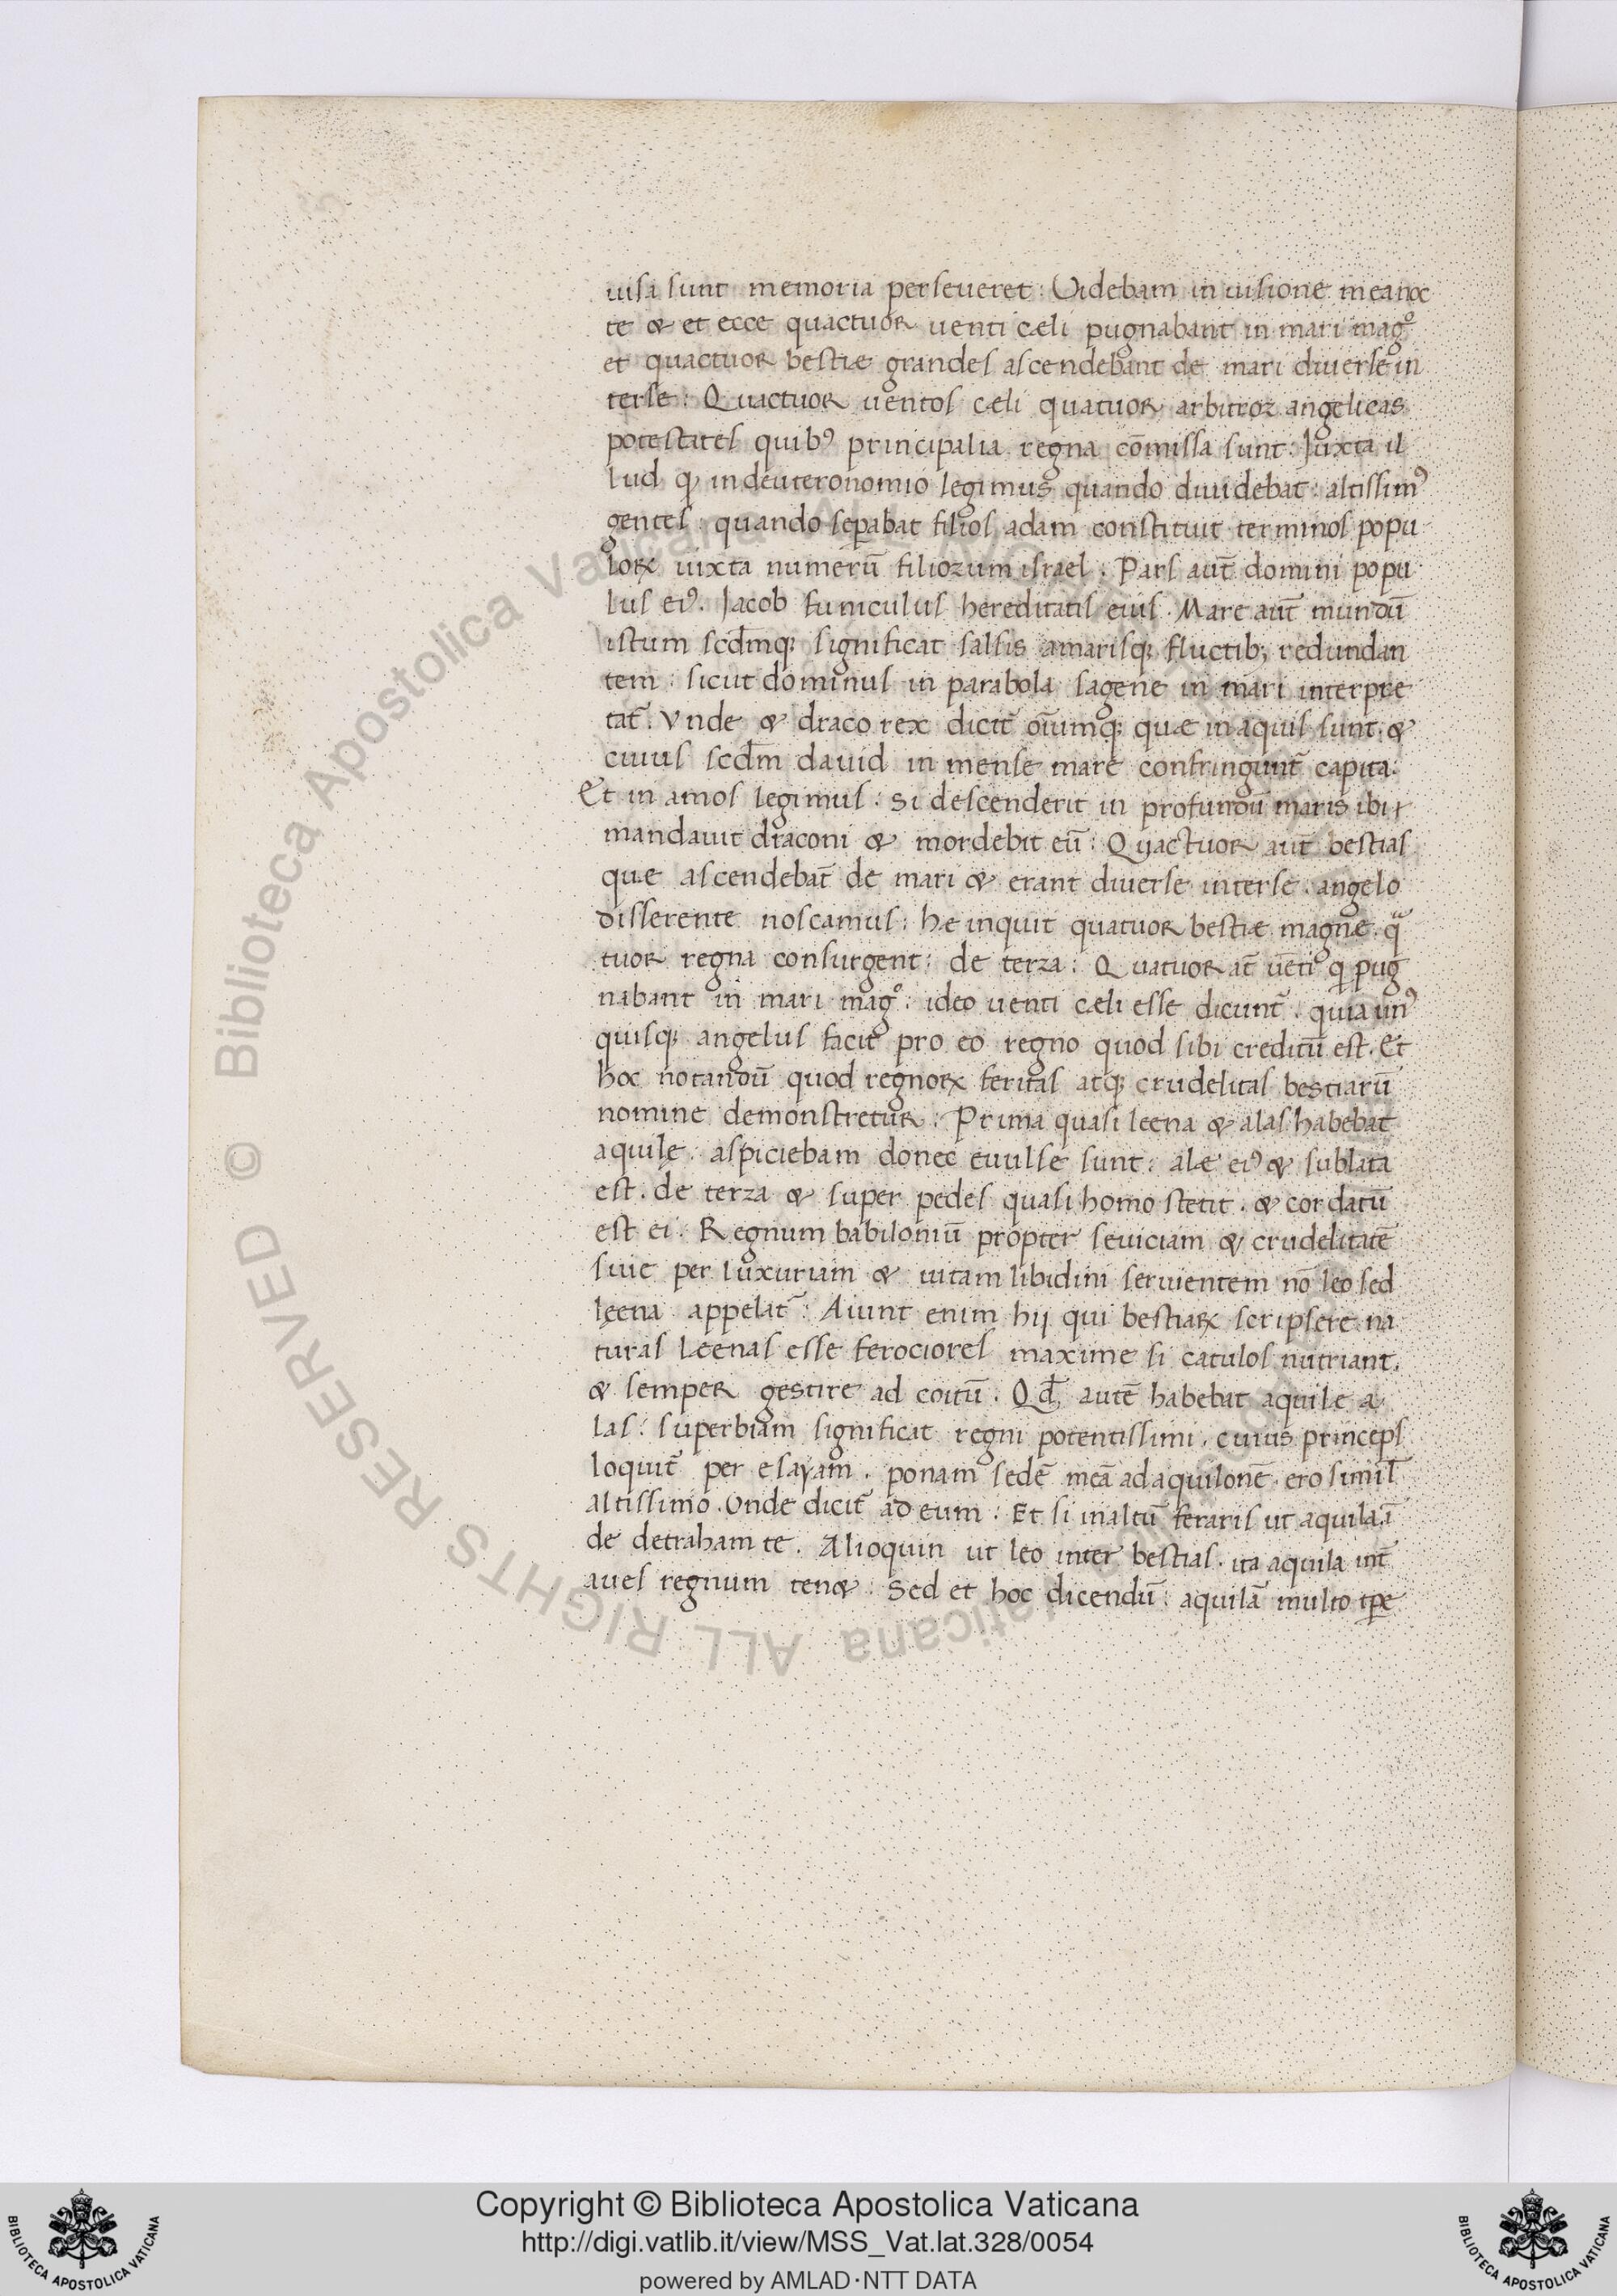 uisa sunt memoria perseueret: Uidebam in uisione mea noc
te & et ecce quactuor uenti cæli pugnabant in mari magº
et quactuor bestiæ grandes ascendebant de mari diuerse in
terse: Quactuor uentos cæli quatuor arbitror angelicas
potestates quibꝰ principalia regna cōmissa sunt: Juxta il
lud ꝙ in deuteronomio legimus quando diuidebat: altissimꝰ
gentes: quando sepabat filios adam constituit terminos popu
loꝝ iuxta numerū filiorum israel. Pars aut̄ domini popu
lus eiꝰ. Jacob funiculus hereditatis eius. Mare aut̄ mundū
istum scdm̄qꝫ significat salsis amarisqꝫ fluctibꝫ redundan
tem: sicut dominus in parabola sagene in mari interpre
tat̄. Vnde & draco rex dicit̄ oīumqꝫ quæ in aquis sunt. &
cuius scdm̄ dauid in mense mare confringunt̄ capita:
Et in amos legimus: si descenderit in profundū maris ibi
mandauit draconi & mordebit eū: Quactuor aut̄ bestias
que ascendebāt de mari & erant diuerse interse. angelo
disserente noscamus: hæ inquit quatuor bestiæ magne. qᵃ
tuor regna consurgent: de terra: Quatuor at̄ uēti q pug
nabant in mari magº: ideo uenti cæli esse dicunt̄. quia unꝰ
quisqꝫ angelus facit pro eo regno quod sibi creditū est. Et
hoc notandū quod regnoꝝ feritas atqꝫ crudelitas bestiarū
nomine demonstretur: Prima quasi leena & alas habebat
aquile: aspiciebam donec euulse sunt: alæ eiꝰ & sublata
est. de terra & super pedes quasi homo stetit. & cor datū
est ei. Regnum babiloniū propter seuiciam & crudelitatē
siue per luxuriam & uitam libidini seruientem nō leo sed
leena appelat̄: Aiunt enim hij qui bestiaꝝ scripsere na
turas Leenas esse ferociores maxime si catulos nutriant.
& semper gestire ad coitū. Qd̄, autē habebat aquile a
las: superbiam significat regni potentissimi. cuius princeps
loquit̄ per esayam. ponam sedē meā ad aquilonē. ero simil̄
altissimo. Unde dicit̄ ad eum: Et si in altū feraris ut aquila. ī
de detraham te. Alioquin ut leo inter bestias. ita aquila int̄
aues regnum ten&: Sed et hoc dicendū: aquilā multo tp̄e
Copyright © Biblioteca Apostolica Vaticana
http://digi.vatlib.it/view/MSS_Vat.lat.328/0054
powered by AMLAD·NTT DATA
© Biblioteca Apostolica Vaticana ALL RIGHTS RESERVED
BIBLIOTECA APOSTOLICA VATICANA
BIBLIOTECA APOSTOLICA VATICANA